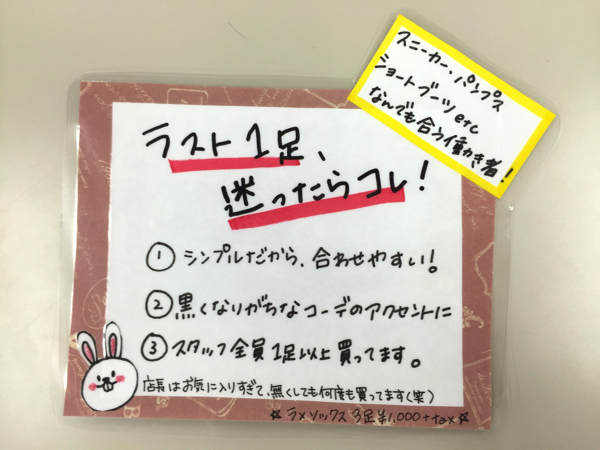 スニーカー・パンプス
ショートブーツetc
なんでも合う働き者!
ラスト1足、
迷ったらコレ!
① シンプルだから、合わせやすい!
② 黒くなりがちなコーデのアクセントに
③ スタッフ全員1足以上買ってます。
店長はお気に入りすぎて、無くしても何度も買ってます(笑)
☆ラメソックス 3足¥1,000+tax☆